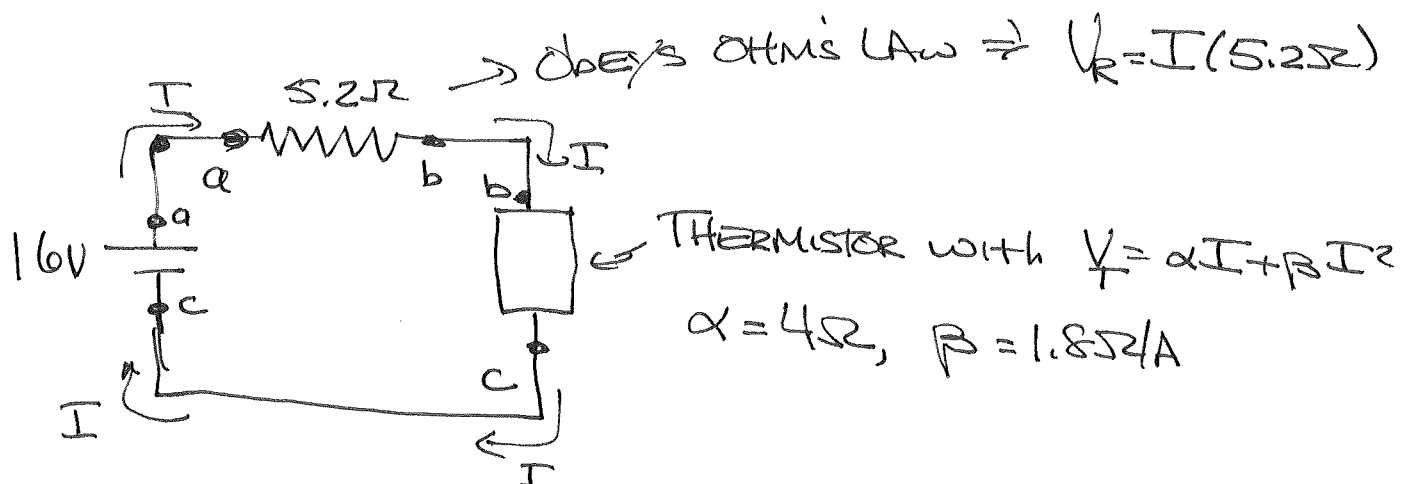 → ObEy's OHM'S LAW ⇒ V_R = I(5.2Ω)
I
5.2Ω
I
a
b
a
b
16V
THERMISTOR with V_T = αI + βI²
α = 4Ω, β = 1.8Ω/A
c
c
I
I